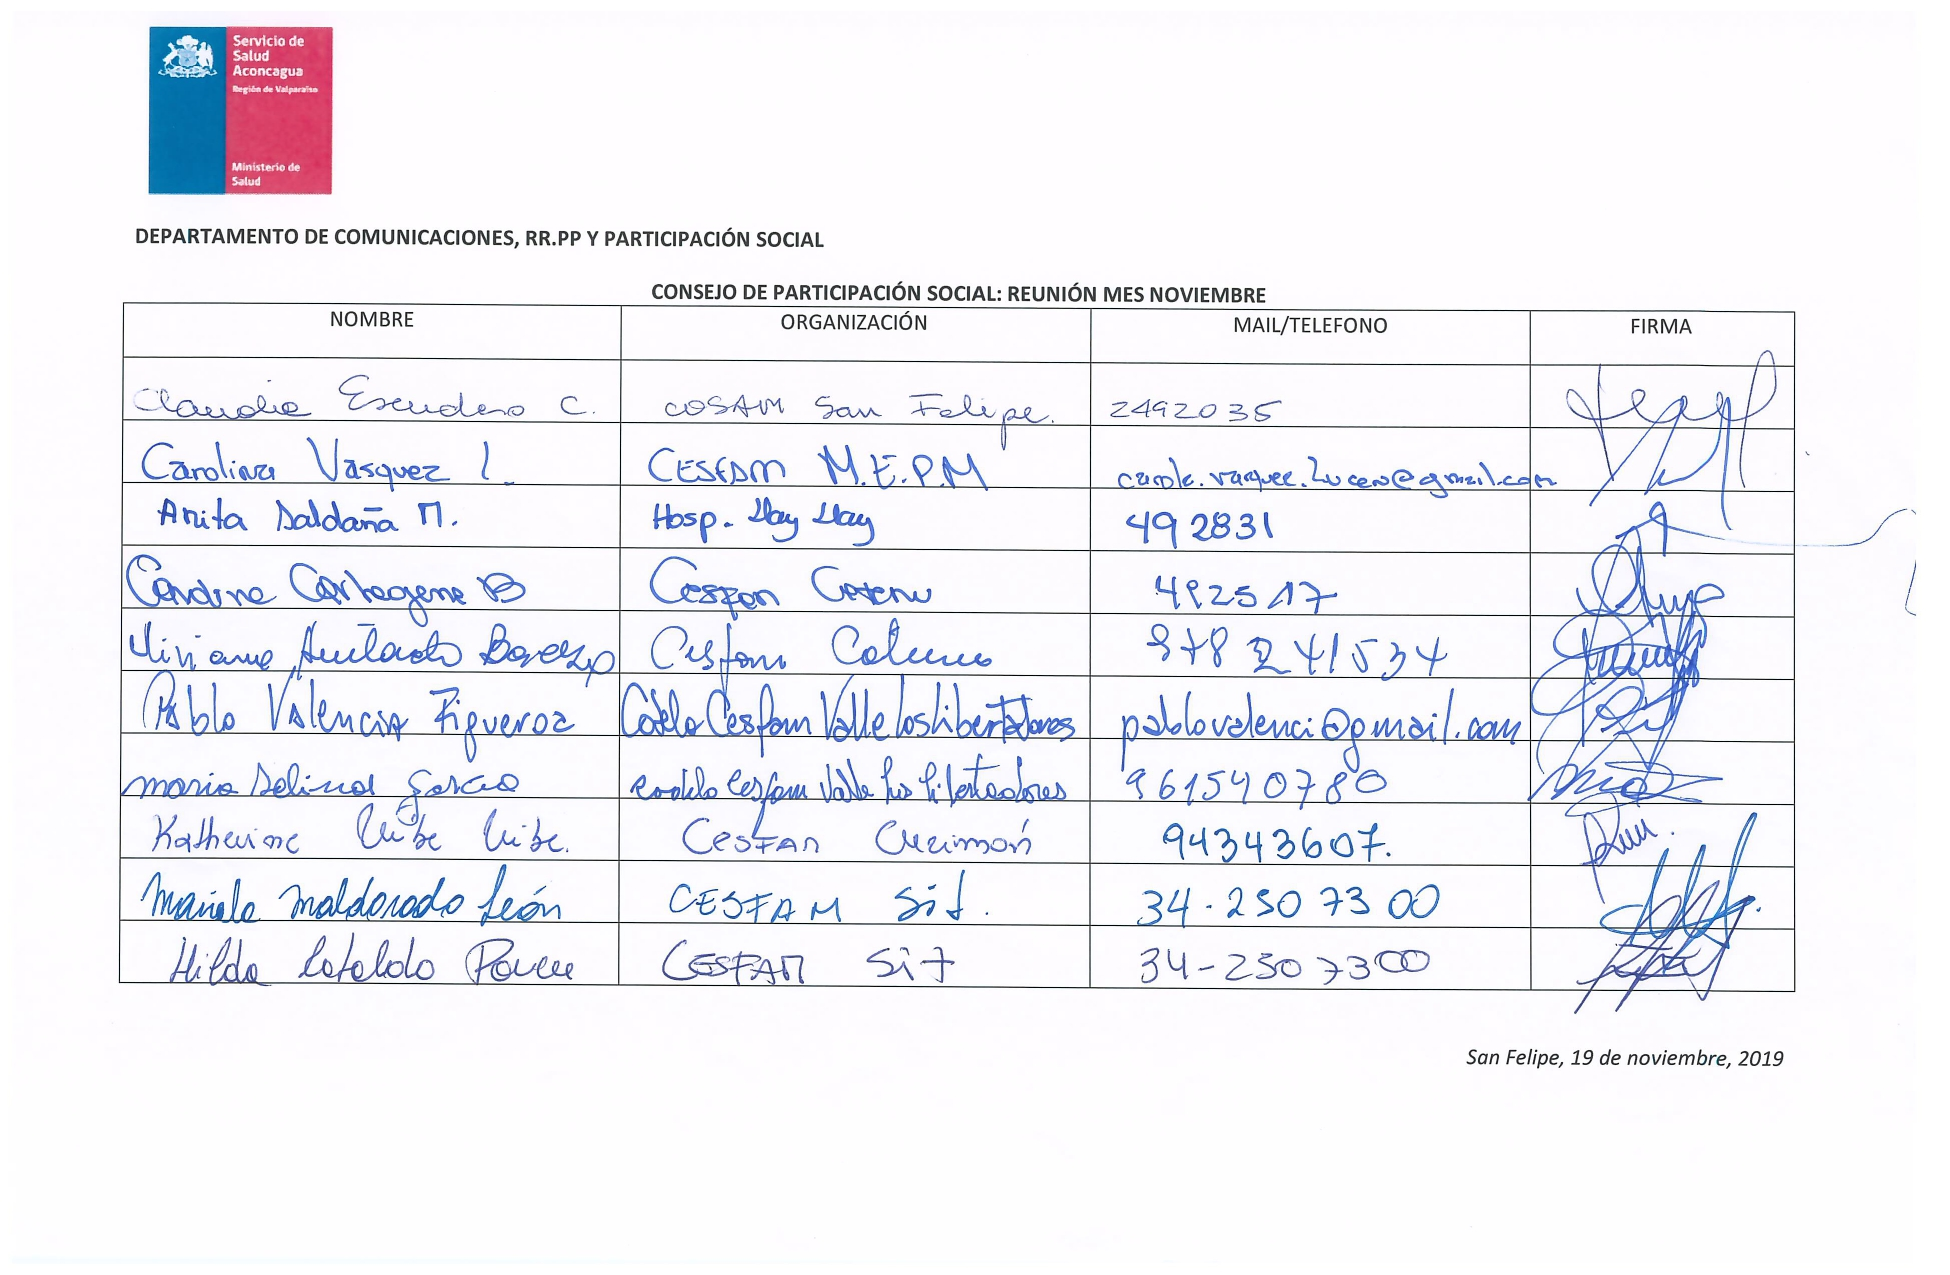 Servicio de
Salud
Aconcagua
Región de Valparaíso
Ministerio de
Salud
DEPARTAMENTO DE COMUNICACIONES, RR.PP Y PARTICIPACIÓN SOCIAL
CONSEJO DE PARTICIPACIÓN SOCIAL: REUNIÓN MES NOVIEMBRE
NOMBRE ORGANIZACIÓN MAIL/TELEFONO FIRMA
Claudia Escudero C. COSAM San Felipe. 2492035
Carolina Vasquez L CESFAM M.E.P.M
Anita Saldaña M. Hosp. Llay Llay 492831
Cartagena B Cesfam 492517
Hurtado Cesfam 978241534
Pablo Valencia Figueroa Codelo Cesfam Valle los libertadores pablovalenci@gmail.com
Maria Salinas Garcia codelo Cesfam Valle los libertadores 961540780
Katherine Uribe Uribe. CESFAM Curimón 94343607.
Mariela Maldonado León CESFAM Sif. 34-250 73 00
Hilda Cataldo CESFAM Sif 34-2507300
San Felipe, 19 de noviembre, 2019